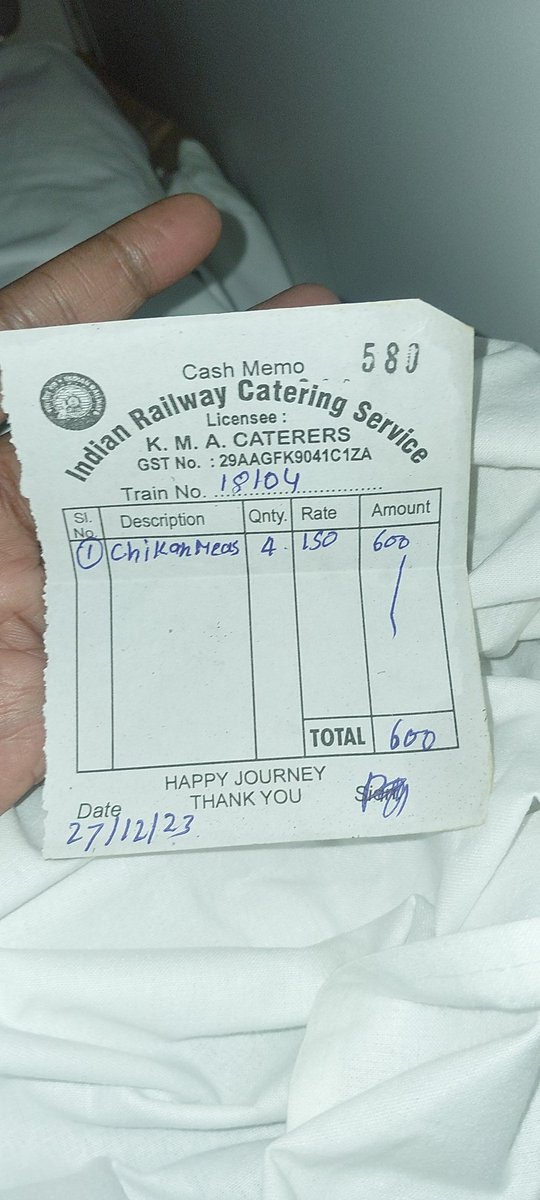 Cash Memo 580
Indian Railway Catering Service
Licensee :
K. M. A. CATERERS
GST No. : 29AAGFK9041C1ZA
Train No. 18104
Sl. No. Description Qnty. Rate Amount
1 Chikan Meas 4 150 600
TOTAL 600
HAPPY JOURNEY
THANK YOU
Date
27/12/23